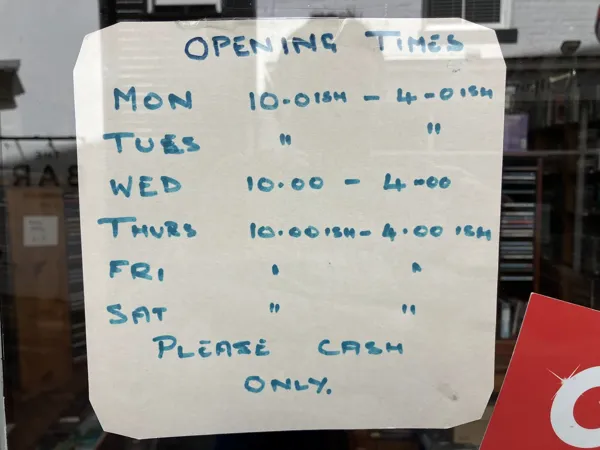 OPENING TIMES
MON 10.0ISH - 4.0ISH
TUES " "
WED 10.00 - 4.00
THURS 10.00ISH - 4.00 ISH
FRI " "
SAT " "
PLEASE CASH
ONLY.